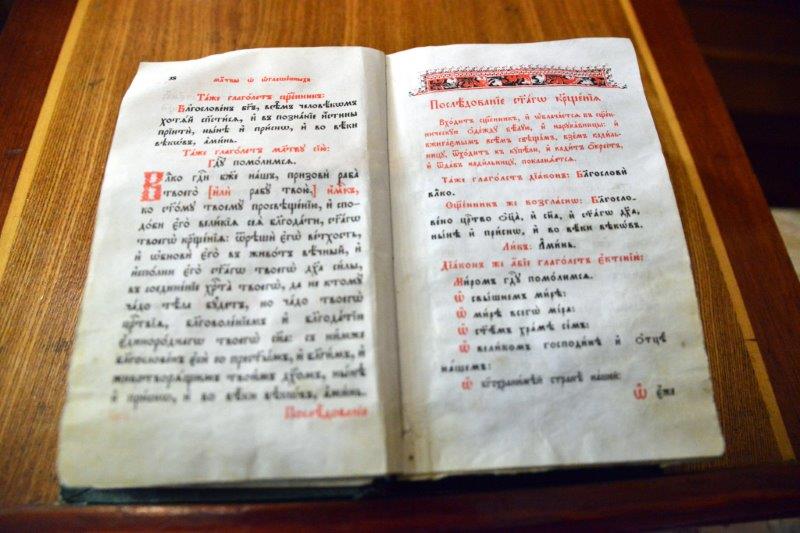 Мл҃твы ѡ҆ ѡ҆глаше́нныхъ
Та́же глаго́летъ сщ҃е́нникъ:
Бл҃гослове́нъ бг҃ъ, всѣ̑мъ человѣ́кѡмъ
хотѧ́й сп҃сти́сѧ, и҆ въ позна́нїе и҆́стины
прїитѝ, ны́нѣ и҆ при́снѡ, и҆ во вѣ́ки
вѣкѡ́въ, а҆ми́нь.
Та́же глаго́летъ мл҃тву сїю̀:
Гдⷭ҇у помо́лимсѧ.
Влⷣко гдⷭ҇и бж҃е на́шъ, призовѝ раба̀
твоего̀ [и҆лѝ рабꙋ̀ твою̀,] и҆́м҃къ,
ко ст҃о́мꙋ твоемꙋ̀ просвѣще́нїю, и҆ спо-
до́би є҆го̀ вели́кїѧ сеѧ̀ блгⷣти, ст҃а́гѡ
твоегѡ̀ крⷭ҇ще́нїѧ: ѿрѣшѝ є҆гѡ̀ ве́тхость,
и҆ ѡ҆бновѝ є҆го̀ въ живо́тъ вѣ́чный, и҆
и҆спо́лни є҆го̀ ст҃а́гѡ твоегѡ̀ дх҃а си́лы,
въ соедине́нїе хрⷭ҇та̀ твоегѡ̀, да не ктомꙋ̀
ча́до тѣ́ла бꙋ́детъ, но ча́до твоегѡ̀
црⷭ҇твїѧ, бл҃говоле́нїемъ и҆ блгⷣтїю
є҆диноро́днагѡ твоегѡ̀ сн҃а: съ ни́мже
бл҃гослове́нъ є҆сѝ со прест҃ы́мъ, и҆ бл҃ги́мъ, и҆
животворѧ́щимъ твои́мъ дх҃омъ, ны́нѣ
и҆ при́снѡ, и҆ во вѣ́ки вѣкѡ́въ, а҆ми́нь.
Послѣ́дованїе
Послѣ́дованїе ст҃а́гѡ крⷭ҇ще́нїѧ
Вхо́дитъ сщ҃е́нникъ, и҆ ѡ҆блача́етсѧ въ сщ҃е́н-
ническꙋю ѻ҆де́ждꙋ бѣ́лꙋю, и҆ нарꙋка́вницы: и҆
вжига́ємымъ всѣ̑мъ свѣща́мъ, взе́мъ кади́ль-
ницꙋ, ѿхо́дитъ къ кꙋпе́ли, и҆ кади́тъ ѡ҆́крестъ,
и҆ ѿда́въ кади́льницꙋ, покланѧ́етсѧ.
Та́же глаго́летъ дїа́конъ: Бл҃гословѝ
влⷣко.
Сщ҃е́нникъ же возгла́снѡ: Бл҃госло-
ве́но црⷭ҇тво ѻ҆ц҃а̀, и҆ сн҃а, и҆ ст҃а́гѡ дх҃а,
ны́нѣ и҆ при́снѡ, и҆ во вѣ́ки вѣкѡ́въ.
Ли́къ: А҆ми́нь.
Дїа́конъ же а҆́бїе глаго́летъ є҆ктенїѝ:
Ми́ромъ гдⷭ҇ꙋ помо́лимсѧ.
Ѡ҆ свы́шнемъ ми́рѣ:
Ѡ҆ ми́рѣ всегѡ̀ мі́ра:
Ѡ҆ ст҃ѣ́мъ хра́мѣ се́мъ:
Ѡ҆ вели́комъ господи́нѣ и҆ ѻ҆тцѣ̀
на́шемъ:
Ѡ҆ бг҃охрани́мѣй странѣ̀ на́шей:
Ѡ҆ є҆́же